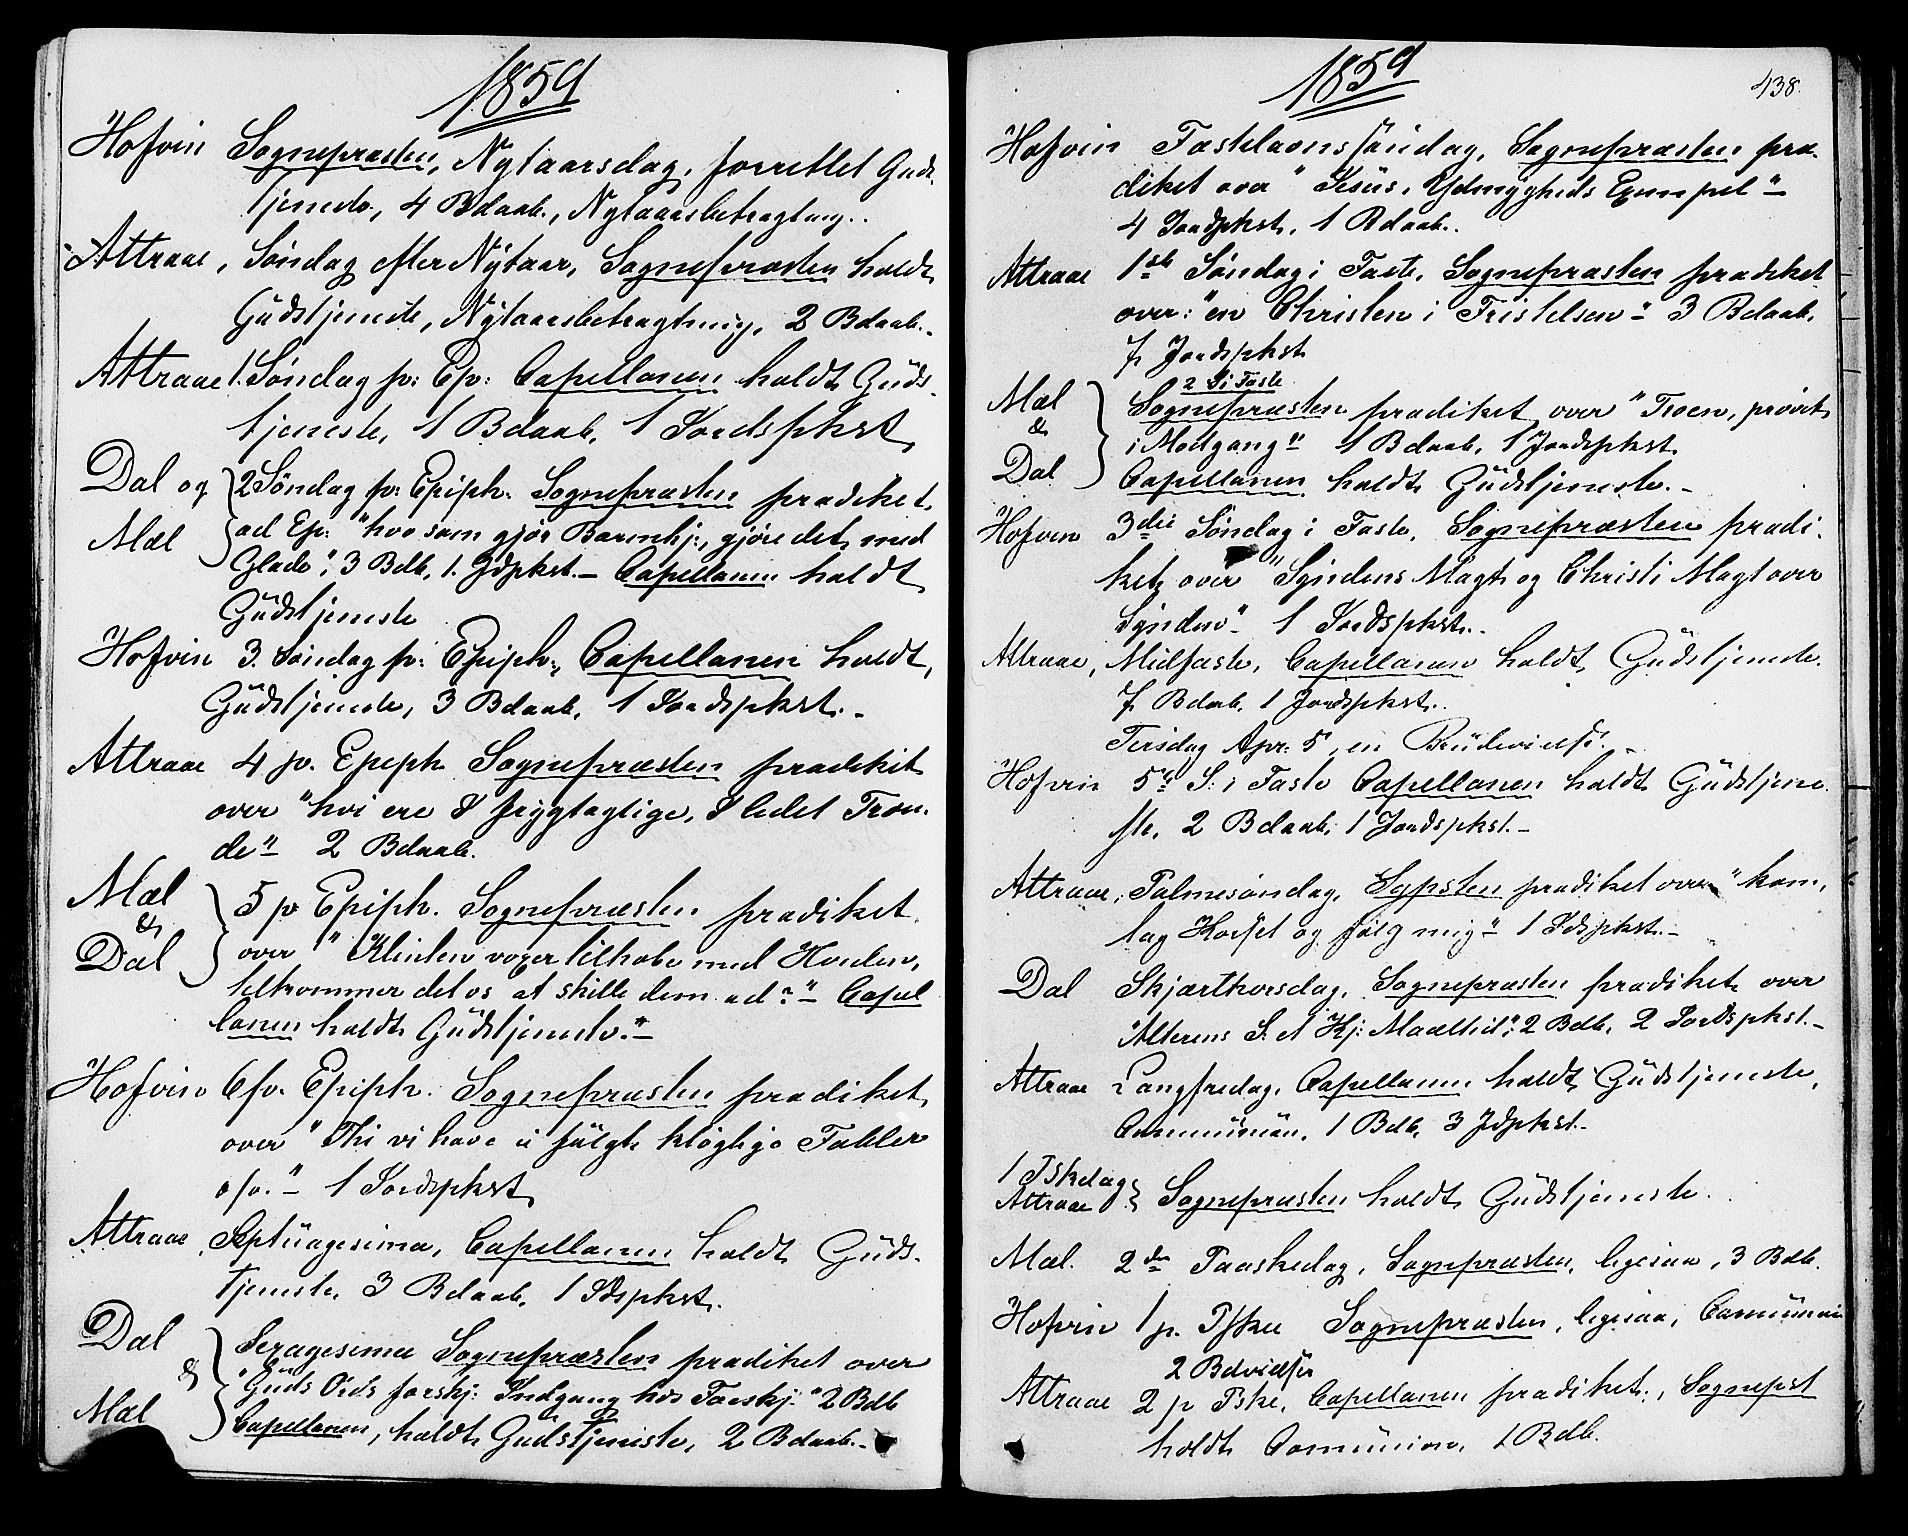 1859
Hofvin Sognepræsten, Nytaarsdag, forrettet Guds-
tjeneste, 4 Bdaab., Nytaarsbetragtning..
Attraae, Søndag efter Nytaar, Sognepræsten holdt
Gudstjeneste, Nytaarsbetragtning, 2 Bdaab..
Attraae 1. Søndag p: Ep: Capellanen holdt Guds-
tjeneste, 1 Bdaab, 1 Jordspkst
Dal og 2 Søndag p: Epiph: Sognepræsten prædiket
Mæl ad Ep: "hvo som gjør Barmhj:, gjøre det med
Glæde", 3 Bdb, 1. Jdpkst. – Capellanen holdt
Gudstjeneste
Hofvin 3. Søndag p: Epiph:, Capellanen holdt
Gudstjeneste, 3 Bdaab, 1 Jordspkst. –
Attraae 4 p. Epiph. Sognepræsten prædiket
over "hvi ere I frygtagtige, I lidet Troen-
de" 2 Bdaab.
Mæl & Dal 5 p Epiph. Sognepræsten prædiket
over "Klinten voxer tilhobe med Hveden,
tilkommer det os at skille dem ad?" – Capel
lanen holdt Gudstjeneste." –
Hofvin 6 p. Epiph. Sognepræsten prædiket
over "Thi vi have ei fulgt kløgtige Fabler
o s v." – 1 Jordspkst
Attraae, Septuagesima, Capellanen holdt Guds-
tjeneste, 3 Bdaab, 1 Jdspkst.
Dal & Sexagesima Sognepræsten prædiket over
"Guds Ords forskj: Indgang hos Forskj:" 2 Bdb
Mæl Capellanen, holdt Gudstjeneste, 2 Bdaab. –
1859
438.
Hofvin Fastelavnssøndag, Sognepræsten præ-
diket over "Jesus, Ydmygheds Exempel" –
4 Jordpkst, 1 Bdaab..
Attraae 1ste Søndag i Faste, Sognepræsten prædiket
over: "en Christen i Fristelsen" – 3 Bdaab,
7 Jordspkst
2 S i Faste
Mæl Sognepræsten prædiket over "Troen, prøvet
& i Modgang" 1 Bdaab, 1 Jordspkst.
Dal Capellanen holdt Gudstjeneste. –
Hofvin 3die Søndag i Faste, Sognepræsten prædi-
ket over "Syndens Magt og Christi Magt over
Synden" – 1 Jordspkst. –
Attraae, Midfaste, Capellanen holdt Gudstjeneste.
7 Bdaab, 1 Jordspkst..
Tirsdag Apr: 5, en Brudevielse. –
Hofvin 5te S: i Faste Capellanen holdt Gudstjene-
ste, 2 Bdaab, 1 Jordspkst. –
Attraae, Palmesøndag, Sgpsten prædiket over "kom,
tag Korset og følg mig" – 1 Jdspkst. –
Dal Skjærthorsdag, Sognepræsten prædiket over
"Alterens S. et Kj: Maaltid", 2 Bdb, 2 Jordspkst. –
Attraae Langfredag, Capellanen holdt Gudstjeneste,
Communion, 1 Bdb, 3 Jdpkst. –
1 Pskedag
Attraae Sognepræsten holdt Gudstjeneste.
Mæl. 2den Paaskedag, Sognepræsten, ligesaa, 3 Bdb.
Hofvin 1 p. Pske Sognepræsten, ligesaa, Communion
2 Bdvielser
Attraae 2 p Pske, Capellanen prædiket, Sognepst
holdt Comunion, 1 Bdb.